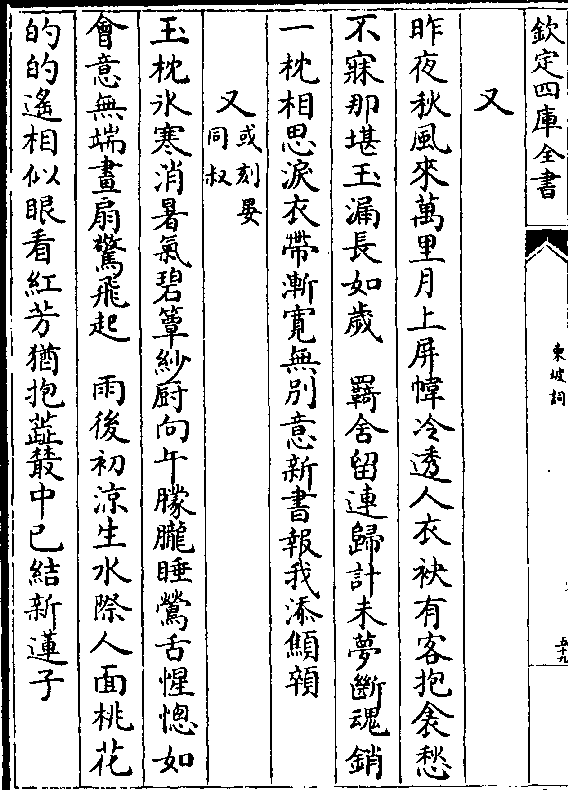 欽定四庫全書
東坡詞
五十九
又
昨夜秋風來萬里月上屏幃冷透人衣袂有客抱衾愁
不寐那堪玉漏長如歲　羇舍留連歸計未夢斷魂銷
一枕相思淚衣帶漸寬無別意新書報我添顦顇
又或刻晏同叔
玉枕氷寒消暑氣碧簟紗厨向午朦朧睡鶯舌惺憁如
會意無端畫扇驚飛起　雨後初涼生水際人面桃花
的的遙相似眼看紅芳猶抱蘂叢中已結新蓮子